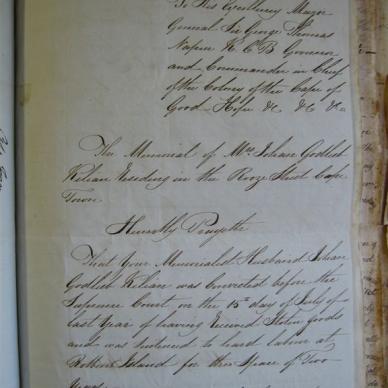 To His Excellency Major
General Sir George Thomas
Napier K C B Governor
and Commander in Chief
of the Colony of the Cape of
Good Hope &c &c &c
The Memorial of Mrs Johan Godlieb
Kilian Residing in the Rooze Street Cape
Town
Humbly Prayeth
That Your Memorialist Husband Johan
Godlieb Kilian was Convicted before the
Supreme Court on the 15th day of July of
last Year of having Received Stolen Goods
and was Sentenced to hard labour at
Robben Island for the Space of Two
Years